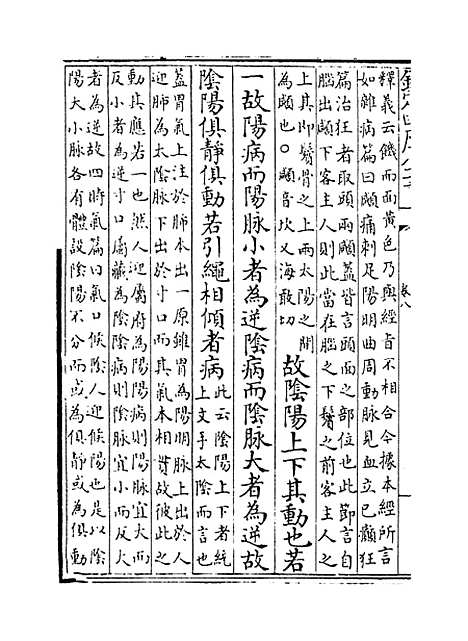 欽定四庫全書
卷八
釋義云饑而面黃色乃與經旨不相合今據本經所言
如雜病篇曰顑痛刺足陽明曲周動脈見血立已癲狂
篇治狂者取頭兩顑蓋皆言頭面之部位也此節言自
腦出顑下客主人則此當在腦之下鬢之前客主人之
上其即鬢骨之上兩太陽之間
為顑也○顑音坎又海敢切
故陰陽上下其動也若
一故陽病而陽脉小者為逆陰病而陰脉大者為逆故
陰陽俱靜俱動若引繩相傾者病
此云陰陽上下者統
上文手太陰而言也
蓋胃氣上注於肺本出一原雖胃為陽明脉上出於人
迎肺為太陰脉下出於寸口而其氣本相貫故彼此之
動其應若一也然人迎屬府為陽陽病則陽脉宜大而
反小者為逆寸口屬藏為陰陰病則陰脉宜小而反大
者為逆故四時氣篇曰氣口候陰人迎候陽也是以陰
陽大小脉各有體設陰陽不分而或為俱靜或為俱動